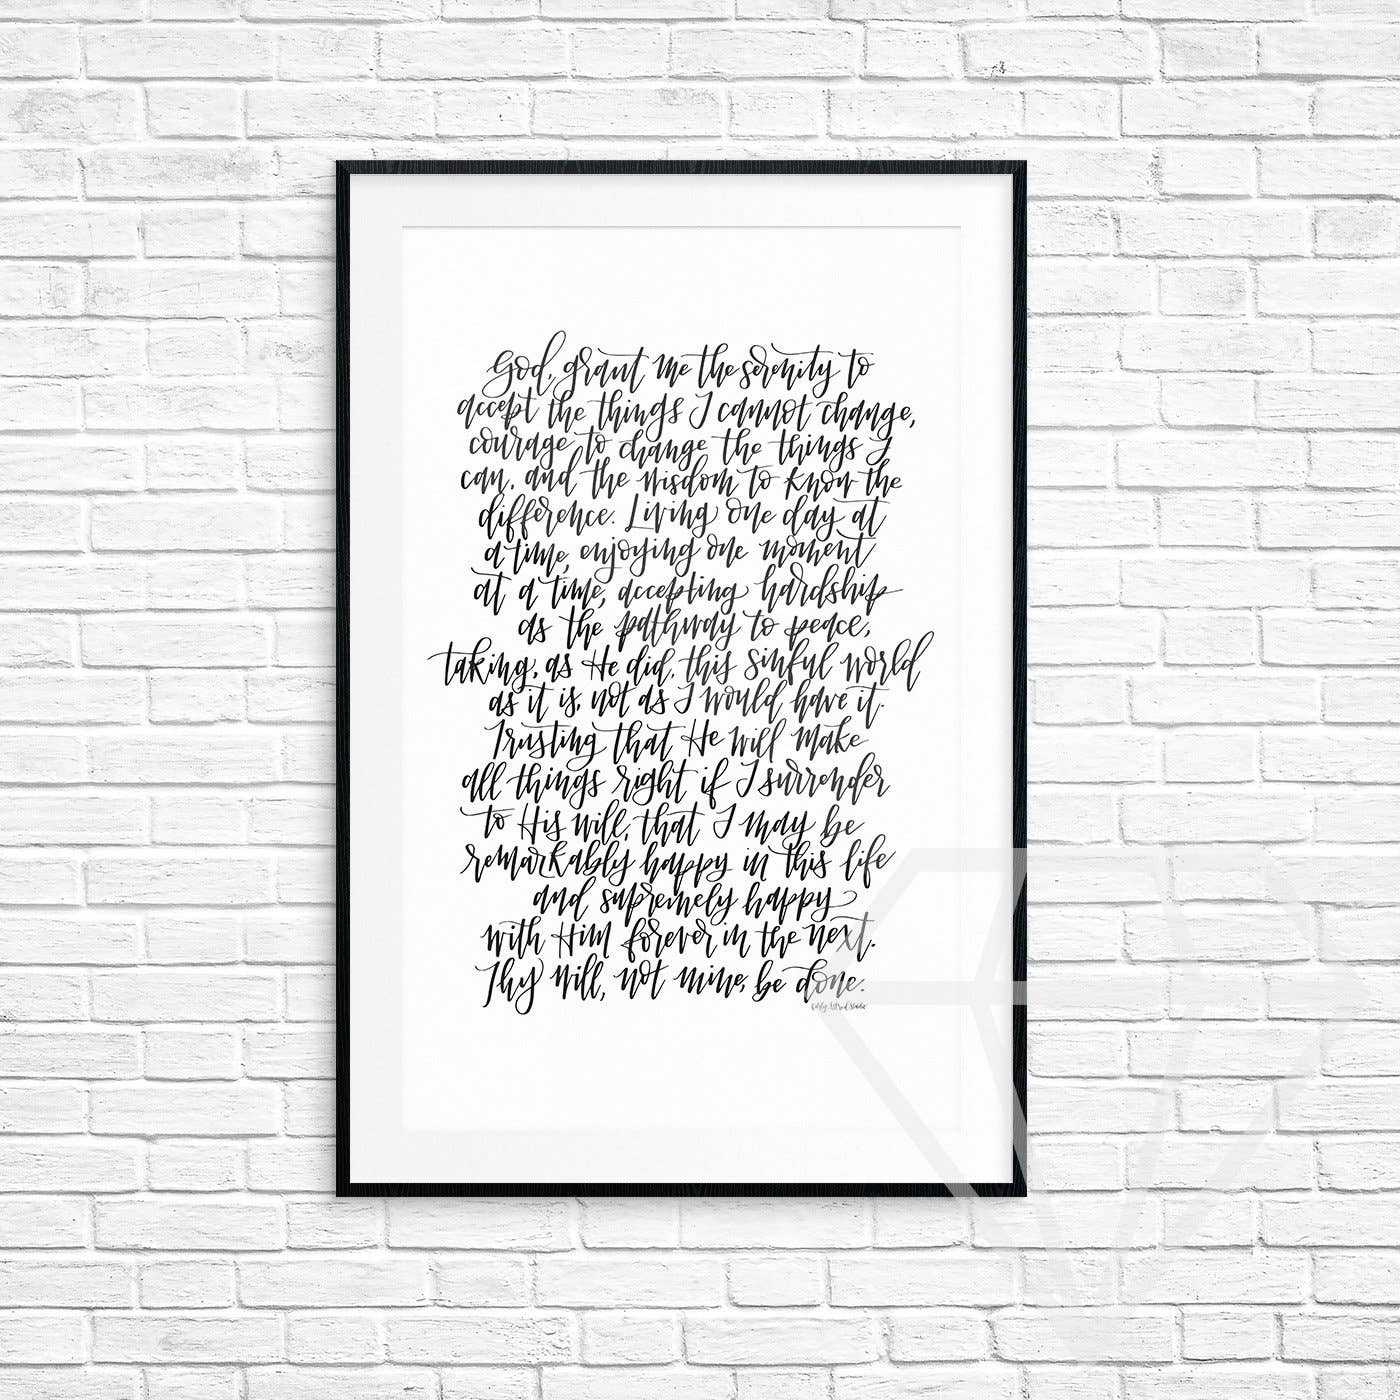 God, grant me the serenity to
accept the things I cannot change,
courage to change the things I
can, and the wisdom to know the
difference. Living one day at
a time, enjoying one moment
at a time, accepting hardship
as the pathway to peace,
taking, as He did, this sinful world
as it is, not as I would have it.
Trusting that He will make
all things right if I surrender
to His will, that I may be
remarkably happy in this life
and supremely happy
with Him forever in the next.
Thy will, not mine, be done.